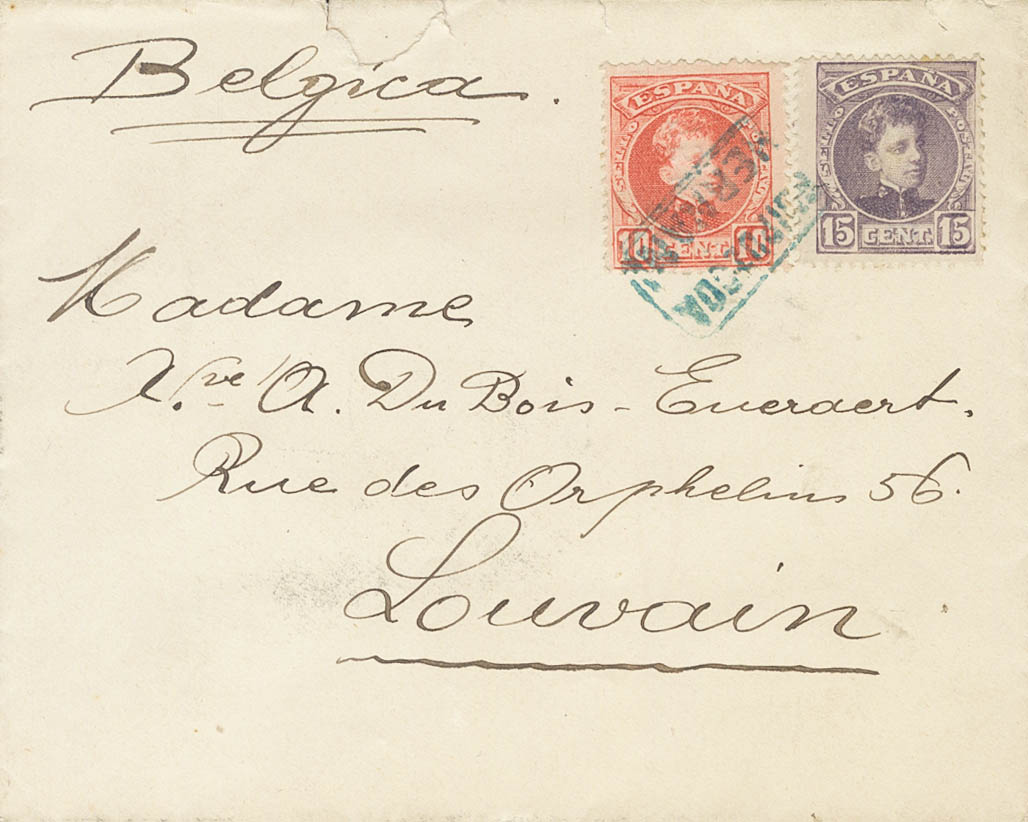 Belgica.
ESPAÑA
10 CENT. 10
ESPAÑA
15 CENT. 15
Madame
V.ve A. Du Bois - Eueraert.
Rue des Orphelins 56.
Louvain